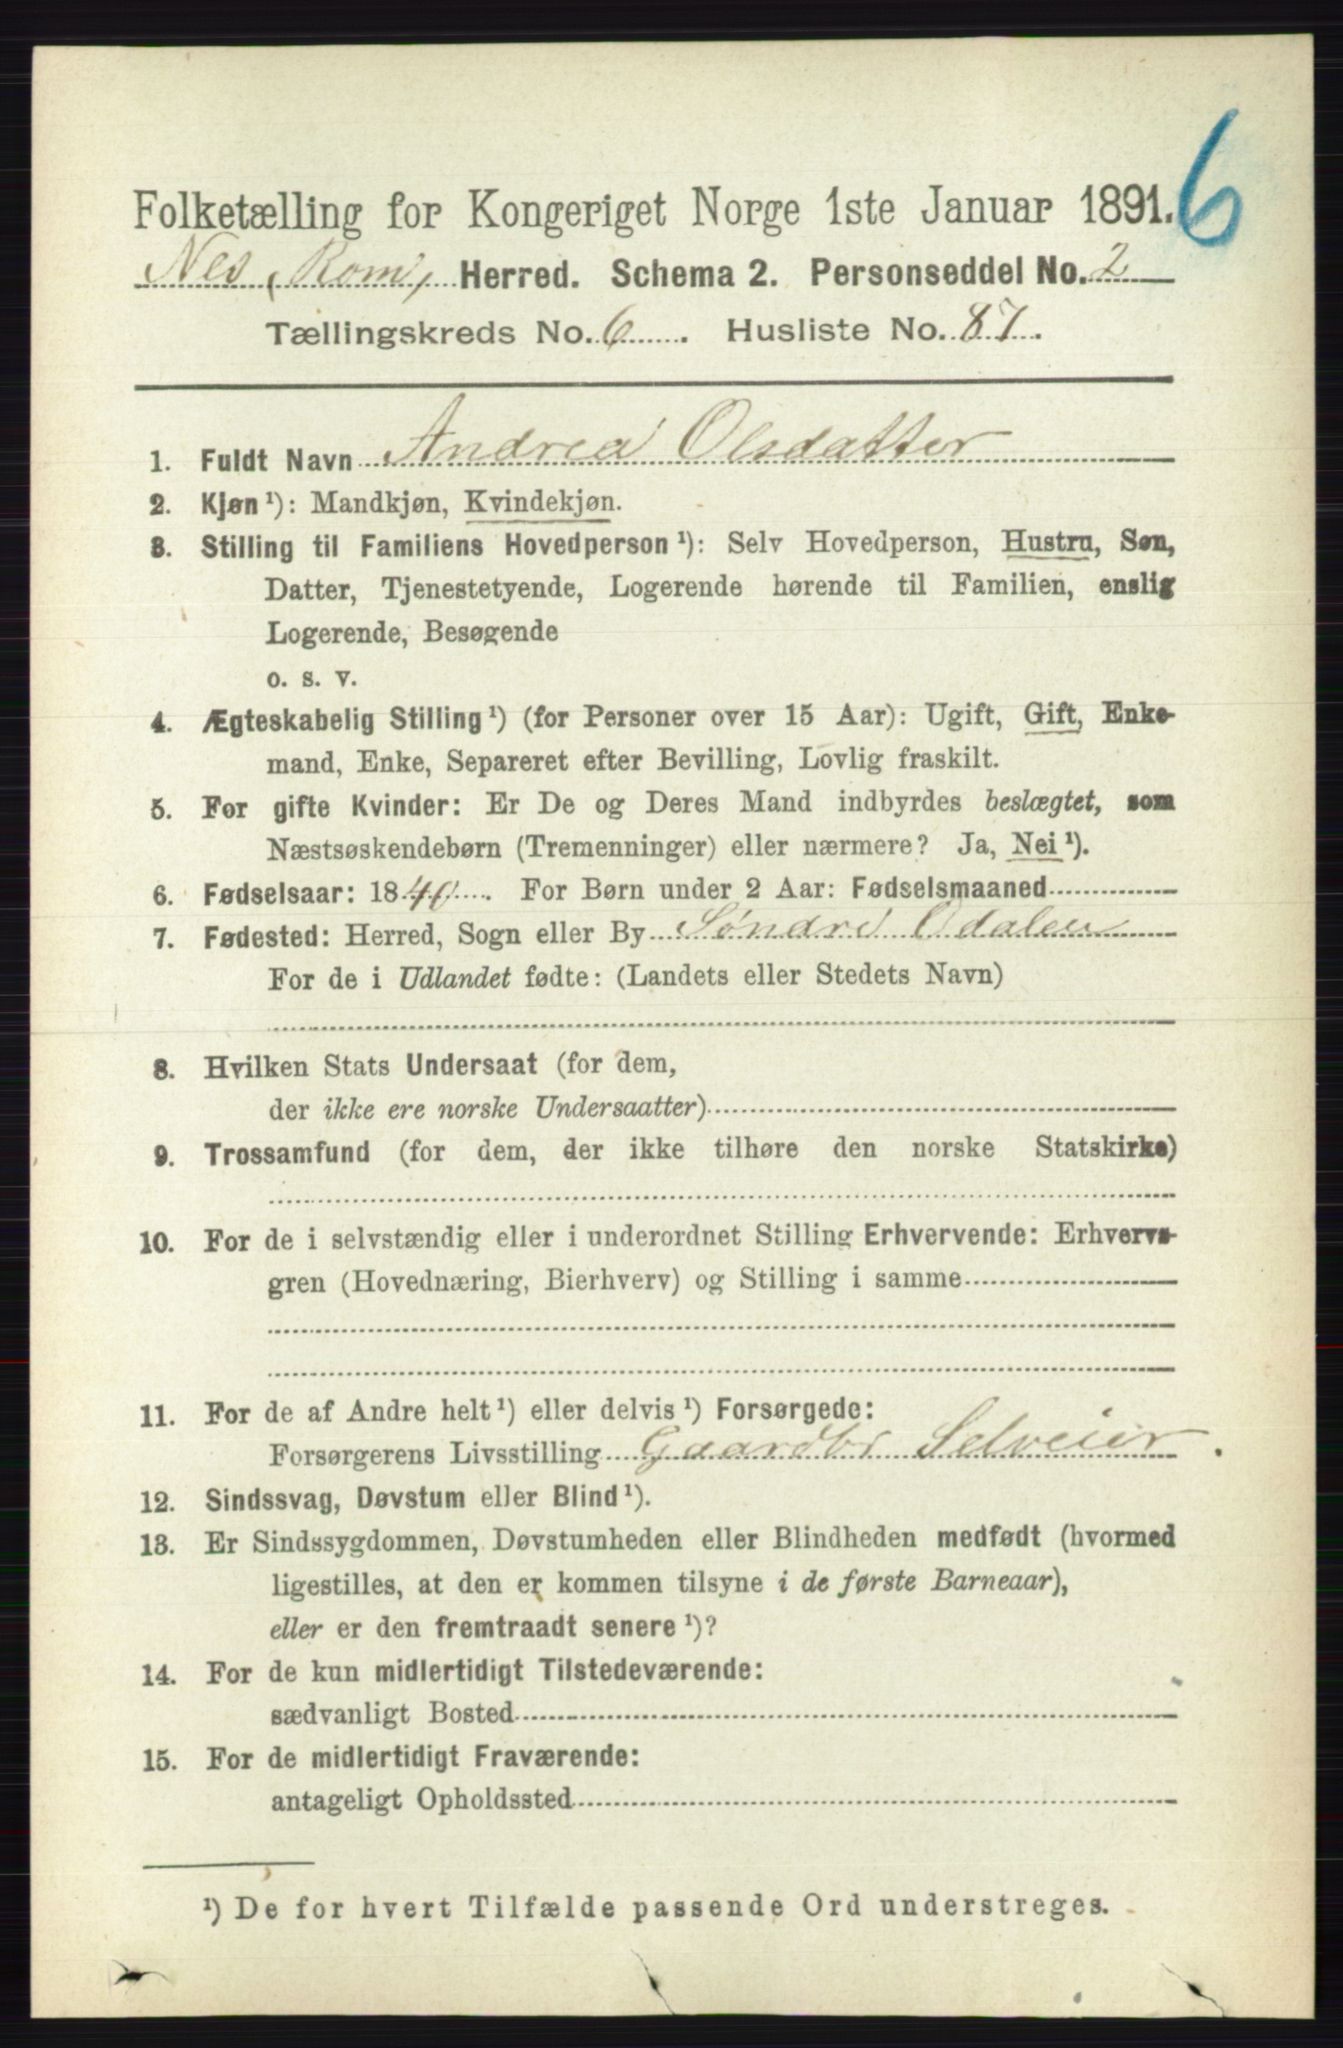 6
Folketælling for Kongeriget Norge 1ste Januar 1891.
Nes, Rom, Herred. Schema 2. Personseddel No. 2
Tællingskreds No. 6. Husliste No. 87.
1. Fuldt Navn Andrea Olsdatter
2. Kjøn ¹): Mandkjøn, Kvindekjøn.
3. Stilling til Familiens Hovedperson ¹): Selv Hovedperson, Hustru, Søn,
Datter, Tjenestetyende, Logerende hørende til Familien, enslig
Logerende, Besøgende
o. s. v.
4. Ægteskabelig Stilling ¹) (for Personer over 15 Aar): Ugift, Gift, Enke-
mand, Enke, Separeret efter Bevilling, Lovlig fraskilt.
5. For gifte Kvinder: Er De og Deres Mand indbyrdes beslægtet, som
Næstsøskendebørn (Tremenninger) eller nærmere? Ja, Nei ¹).
6. Fødselsaar: 1840. For Børn under 2 Aar: Fødselsmaaned
7. Fødested: Herred, Sogn eller By Søndre Odalen
For de i Udlandet fødte: (Landets eller Stedets Navn)
8. Hvilken Stats Undersaat (for dem,
der ikke ere norske Undersaatter)
9. Trossamfund (for dem, der ikke tilhøre den norske Statskirke)
10. For de i selvstændig eller i underordnet Stilling Erhvervende: Erhvervs-
gren (Hovednæring, Bierhverv) og Stilling i samme
11. For de af Andre helt ¹) eller delvis ¹) Forsørgede:
Forsørgerens Livsstilling Gaardbr Selveier.
12. Sindssvag, Døvstum eller Blind ¹).
13. Er Sindssygdommen, Døvstumheden eller Blindheden medfødt (hvormed
ligestilles, at den er kommen tilsyne i de første Barneaar),
eller er den fremtraadt senere ¹)?
14. For de kun midlertidigt Tilstedeværende:
sædvanligt Bosted
15. For de midlertidigt Fraværende:
antageligt Opholdssted
¹) De for hvert Tilfælde passende Ord understreges.